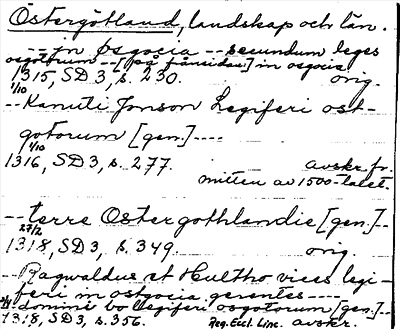 Östergötland, landskap och län.
-- in osgocia -- secundum leges
osgotorum -- [på frånsidan] in osgocia
1/10 1315, SD 3, s. 230. orig.
-- Kanuti Jonson Legiferi ost-
gotorum [gen.] ----
1/10 1316, SD 3, s. 277. avskr. fr.
mitten av 1500-talet.
-- terre Ostergothlandie [gen.] --
27/2 1318, SD 3, s. 349. orig.
-- Ragwaldus et Hultho vices legi-
feri in ostgocia gerentes ----
domini bo legiferi osgotorum [gen.] --
1318, SD 3, s. 356. Reg. Eccl. Linc. avskr.